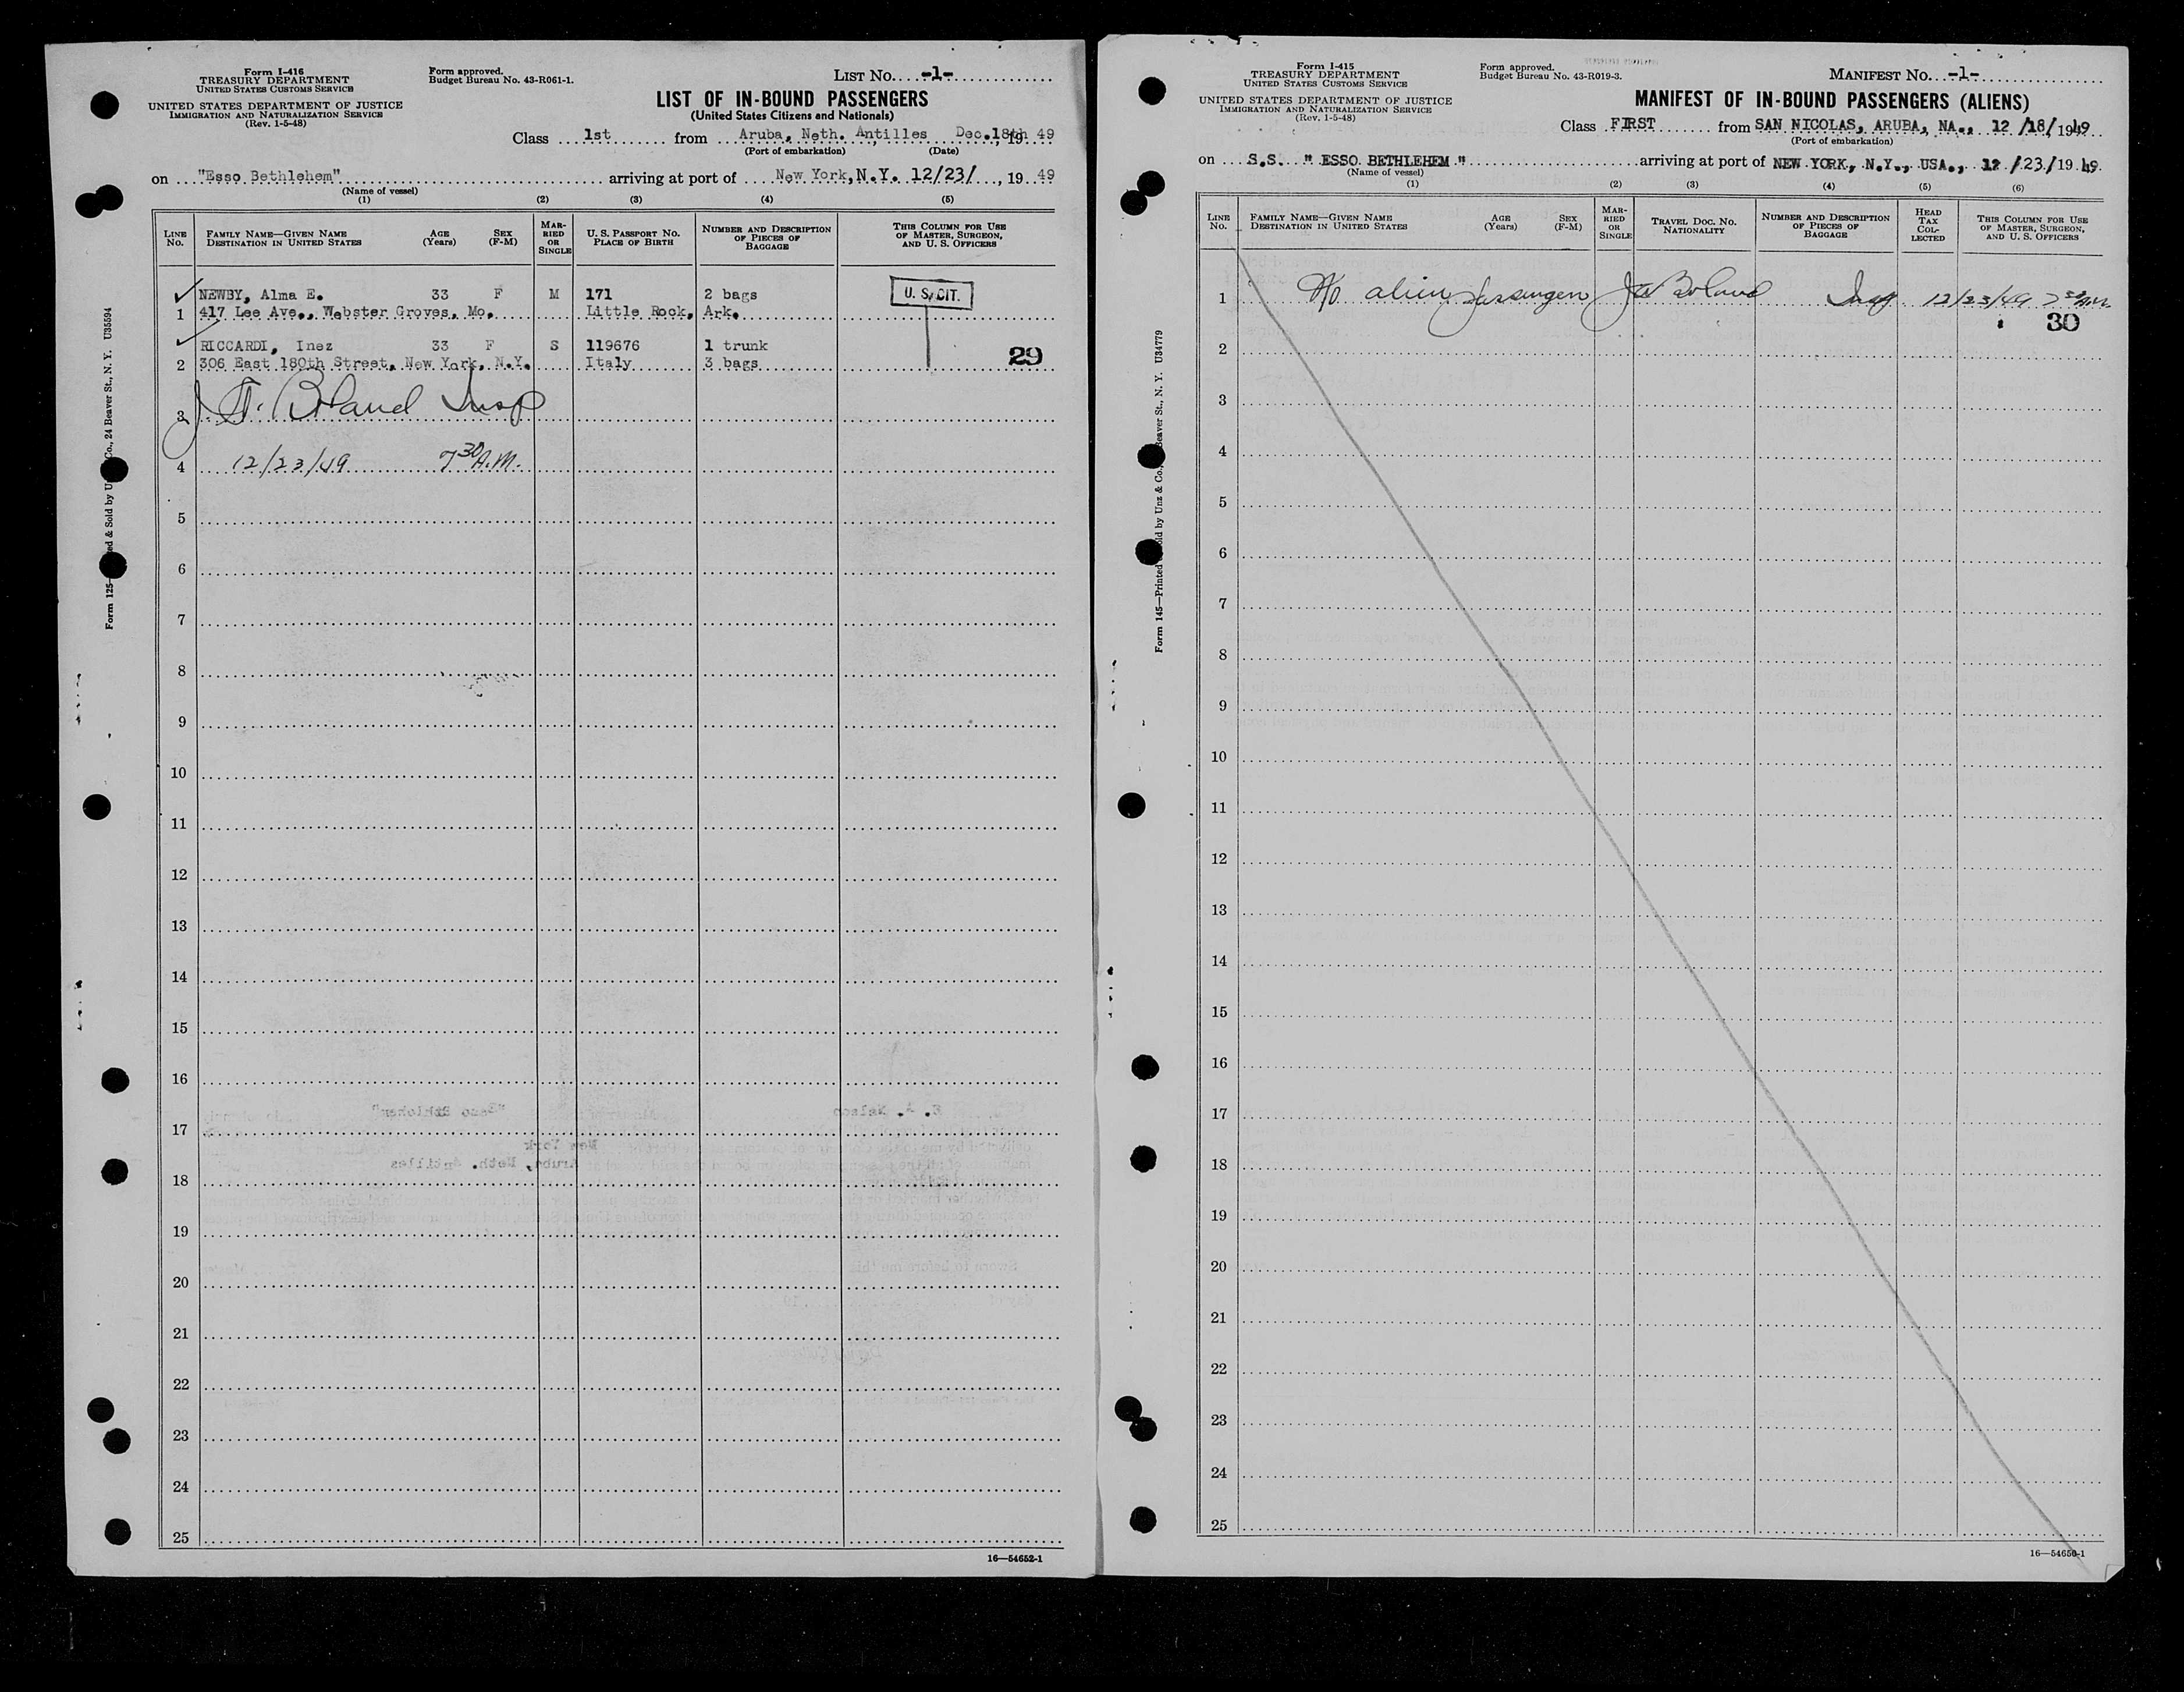 Form I-416
TREASURY DEPARTMENT
UNITED STATES CUSTOMS SERVICE
UNITED STATES DEPARTMENT OF JUSTICE
IMMIGRATION AND NATURALIZATION SERVICE
(Rev. 1-5-48)
Form approved.
Budget Bureau No. 43-R061-1.
LIST No. -1-
LIST OF IN-BOUND PASSENGERS
(United States Citizens and Nationals)
Class 1st from Aruba, Neth. Antilles, Dec. 18th, 19 49
(Port of embarkation) (Date)
on "Esso Bethlehem" arriving at port of New York, N.Y. 12/23/, 19 49
(Name of vessel)
(1) (2) (3) (4) (5)
LINE No. FAMILY NAME—GIVEN NAME DESTINATION IN UNITED STATES AGE (Years) SEX (F-M) MARRIED OR SINGLE U. S. PASSPORT NO. PLACE OF BIRTH NUMBER AND DESCRIPTION OF PIECES OF BAGGAGE THIS COLUMN FOR USE OF MASTER, SURGEON, AND U. S. OFFICERS
NEWBY, Alma E. 33 F M 171 2 bags U. S. CIT.
1 417 Lee Ave., Webster Groves, Mo. Little Rock, Ark.
RICCARDI, Inez 33 F S 119676 1 trunk
2 306 East 180th Street, New York, N.Y. Italy 3 bags 29
3 Boland Insp
4 12/23/49 7 30 A.M.
5
6
7
8
9
10
11
12
13
14
15
16
17
18
19
20
21
22
23
24
25
16—54652-1
Co., 24 Beaver St., N. Y. U35594
Form I-415
TREASURY DEPARTMENT
UNITED STATES CUSTOMS SERVICE
UNITED STATES DEPARTMENT OF JUSTICE
IMMIGRATION AND NATURALIZATION SERVICE
(Rev. 1-5-48)
Form approved.
Budget Bureau No. 43-R019-3.
MANIFEST No. -1-
MANIFEST OF IN-BOUND PASSENGERS (ALIENS)
Class FIRST from SAN NICOLAS, ARUBA, NA., 12 /18/ 1949
(Port of embarkation)
on S.S. " ESSO BETHLEHEM " arriving at port of NEW YORK, N.Y., USA., 12 / 23 / 19 49.
(Name of vessel)
(1) (2) (3) (4) (5) (6)
LINE No. FAMILY NAME—GIVEN NAME DESTINATION IN UNITED STATES AGE (Years) SEX (F-M) MARRIED OR SINGLE TRAVEL DOC. NO. NATIONALITY NUMBER AND DESCRIPTION OF PIECES OF BAGGAGE HEAD TAX COLLECTED THIS COLUMN FOR USE OF MASTER, SURGEON, AND U. S. OFFICERS
1 No alien passengers Boland Insp 12/23/49
30
2
3
4
5
6
7
8
9
10
11
12
13
14
15
16
17
18
19
20
21
22
23
24
25
16—54650-1
Form 145—Printed
Sold by Unz & Co., Beaver St., N. Y. U34779